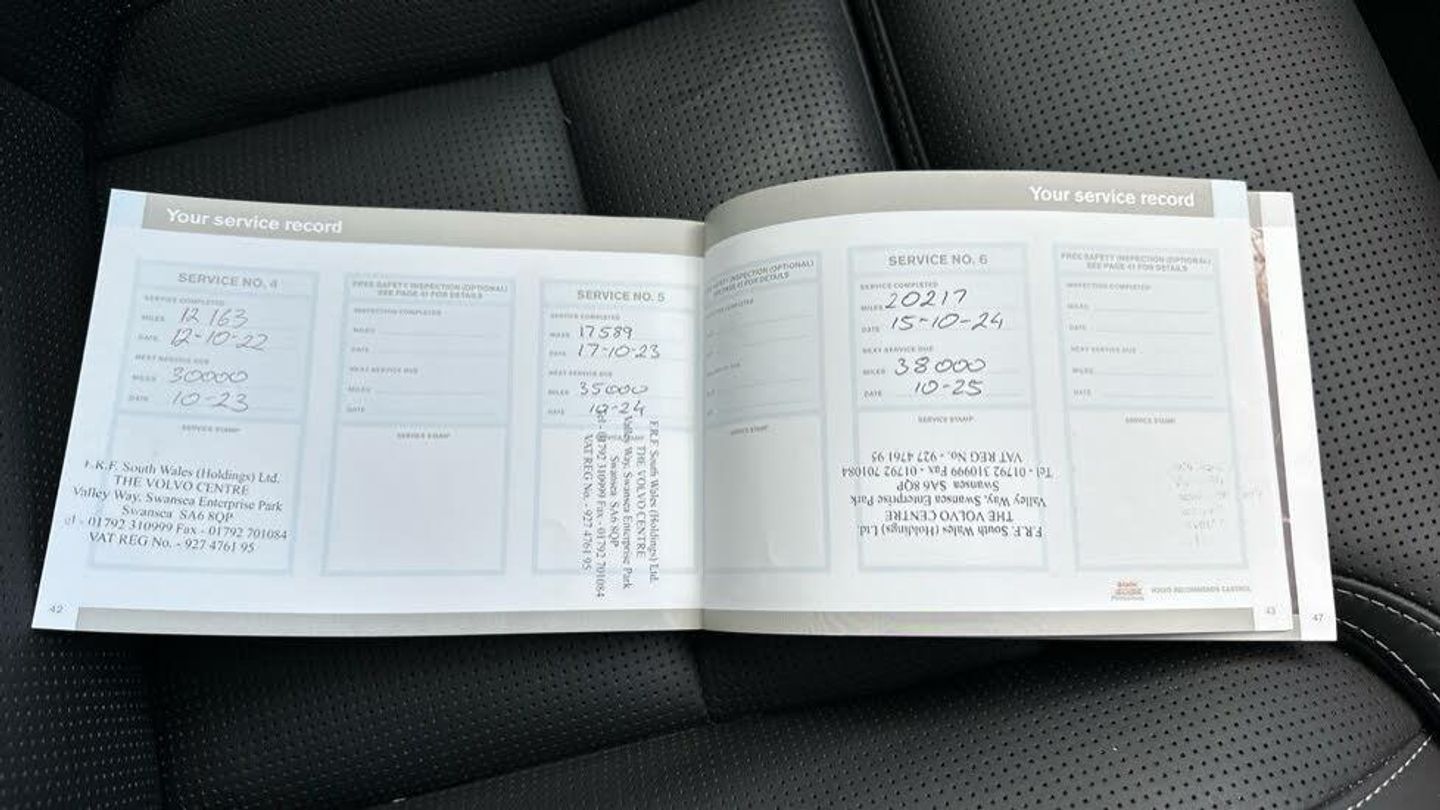 Your service record
SERVICE NO. 4
SERVICE COMPLETED
MILES 12 163
DATE 12-10-22
NEXT SERVICE DUE
MILES 30000
DATE 10-23
SERVICE STAMP
F.R.F. South Wales (Holdings) Ltd.
THE VOLVO CENTRE
Valley Way, Swansea Enterprise Park
Swansea SA6 8QP
el - 01792 310999 Fax - 01792 701084
VAT REG No. - 927 4761 95
42
FREE SAFETY INSPECTION (OPTIONAL)
SEE PAGE 41 FOR DETAILS
INSPECTION COMPLETED
MILES
DATE
NEXT SERVICE DUE
MILES
DATE
SERVICE STAMP
SERVICE NO. 5
SERVICE COMPLETED
MILES 17589
DATE 17-10-23
NEXT SERVICE DUE
MILES 35000
DATE 10-24
F.R.F. South Wales (Holdings) Ltd.
THE VOLVO CENTRE
Valley Way, Swansea Enterprise Park
Swansea SA6 8QP
Tel - 01792 310999 Fax - 01792 701084
VAT REG No. - 927 4761 95
Your service record
INSPECTION (OPTIONAL)
PAGE 41 FOR DETAILS
COMPLETED
SERVICE STAMP
SERVICE NO. 6
SERVICE COMPLETED
MILES 20217
DATE 15-10-24
NEXT SERVICE DUE
MILES 38000
DATE 10-25
SERVICE STAMP
F.R.F. South Wales (Holdings) Ltd.
THE VOLVO CENTRE
Valley Way, Swansea Enterprise Park
Swansea SA6 8QP
Tel - 01792 310999 Fax - 01792 701084
VAT REG No. - 927 4761 95
FREE SAFETY INSPECTION (OPTIONAL)
SEE PAGE 41 FOR DETAILS
INSPECTION COMPLETED
MILES
DATE
NEXT SERVICE DUE
MILES
DATE
SERVICE STAMP
VOLVO RECOMMENDS CASTROL
43
47